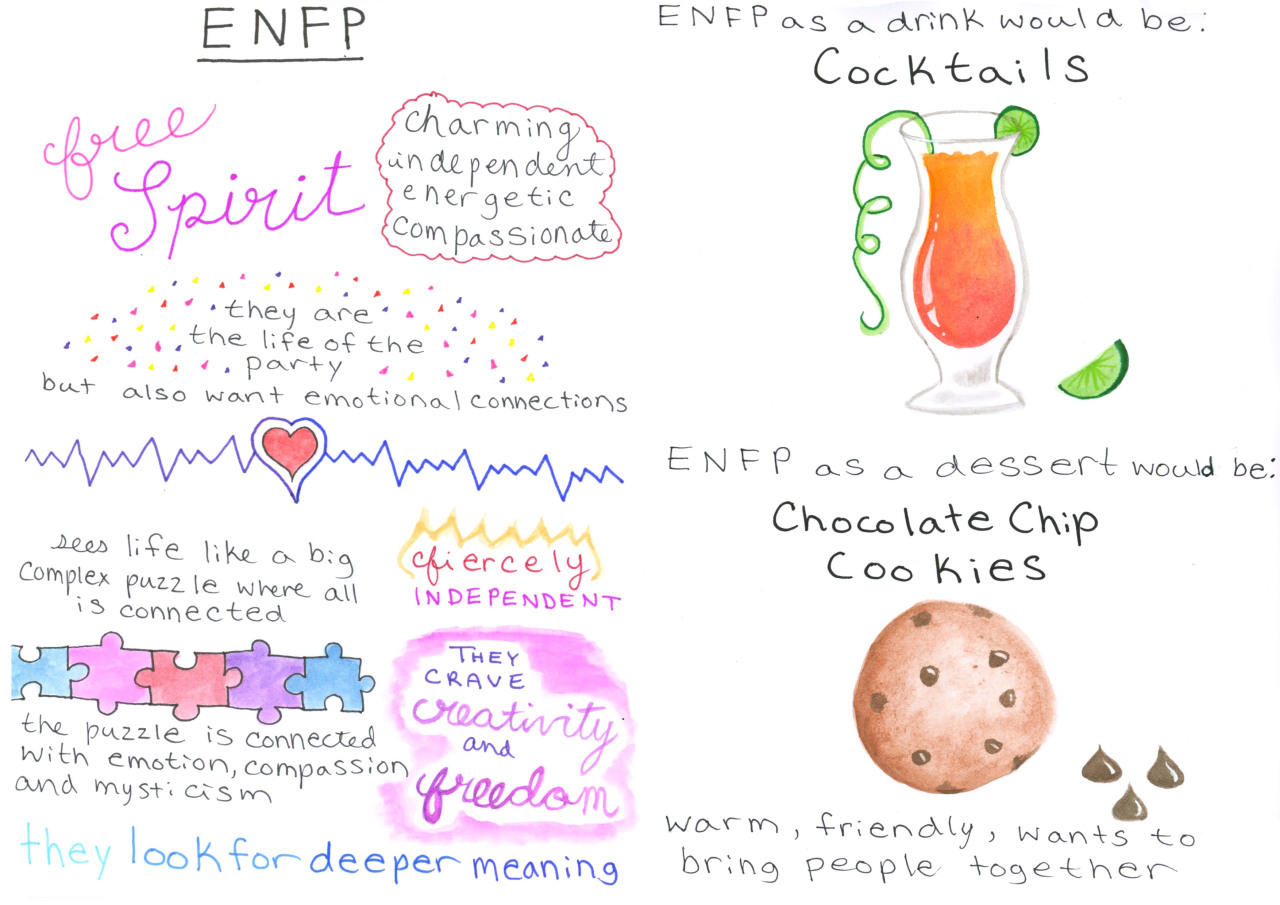 ENFP
free
Spirit
charming
independent
energetic
compassionate
they are
the life of the
party
but also want emotional connections
sees life like a big
complex puzzle where all
is connected
fiercely
INDEPENDENT
the puzzle is connected
with emotion, compassion
and mysticism
THEY
CRAVE
creativity
and
freedom
they look for deeper meaning
ENFP as a drink would be:
Cocktails
ENFP as a dessert would be:
Chocolate Chip
Cookies
warm, friendly, wants to
bring people together